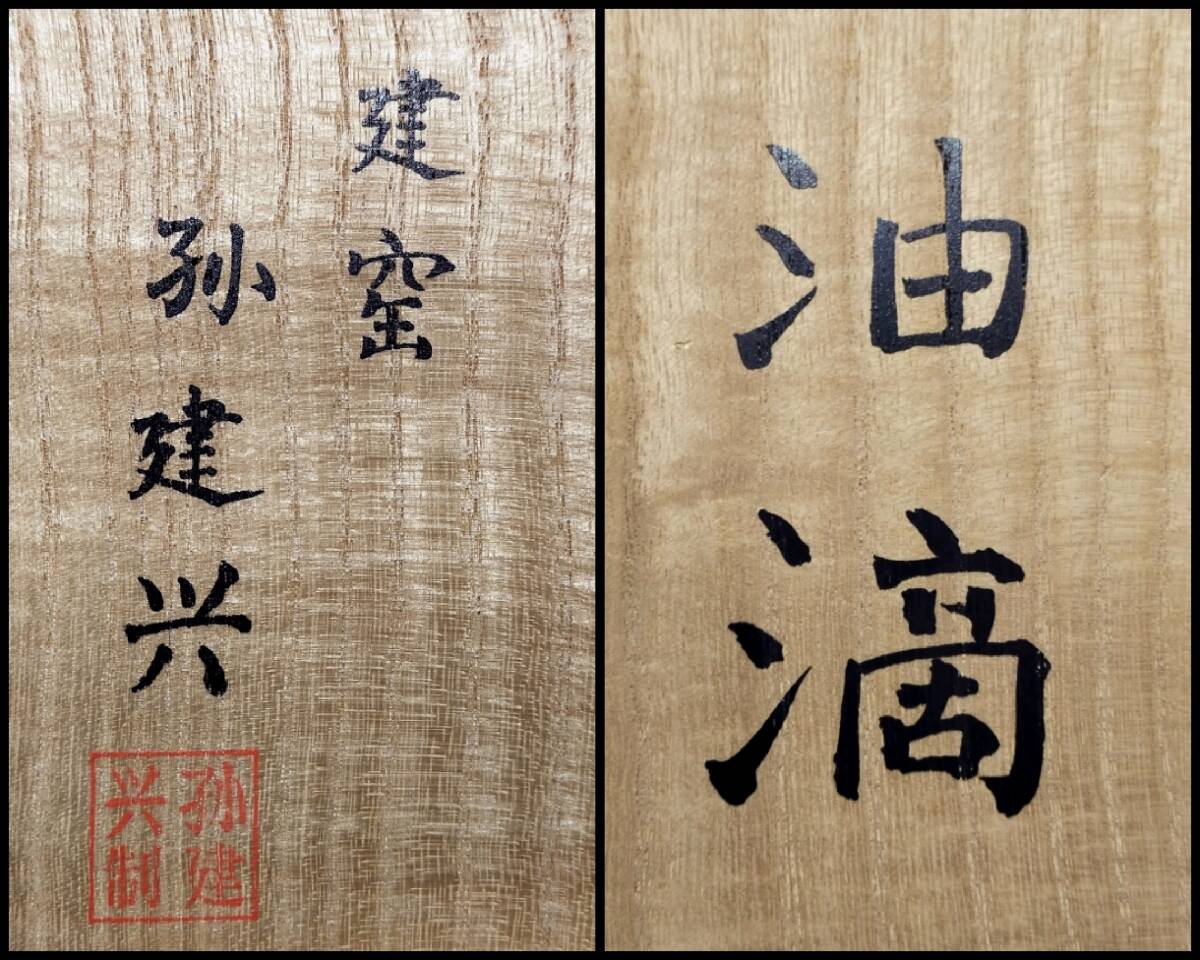 建窑
孙建兴
孙建
兴制
油滴